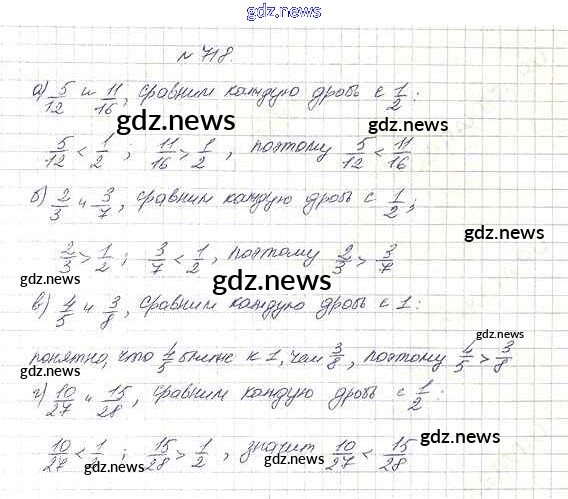 gdz.news
№ 718.
а) 5/12 и 11/16, сравним каждую дробь с 1/2:
gdz.news
gdz.news
5/12 < 1/2 ; 11/16 > 1/2 , поэтому 5/12 < 11/16
б) 2/3 и 3/7, сравним каждую дробь с 1/2;
gdz.news
2/3 > 1/2 ; 3/7 < 1/2, поэтому 2/3 > 3/7
gdz.news gdz.news
в) 4/5 и 3/8, сравним каждую дробь с 1:
gdz.news
понятно, что 4/5 ближе к 1, чем 3/8, поэтому 4/5 > 3/8
gdz.news
г) 10/27 и 15/28, сравним каждую дробь с 1/2:
gdz.news
10/27 < 1/2 ; 15/28 > 1/2 , значит 10/27 < 15/28
gdz.news
gdz.news
gdz.news